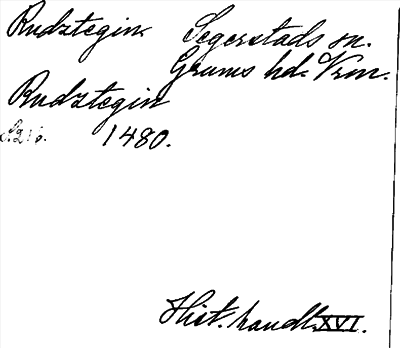 Rudztegin. Segerstads sn.
Grums hd. Vrm.
Rudztegin
S. 216. 1480.
Hist. handl. XVI.